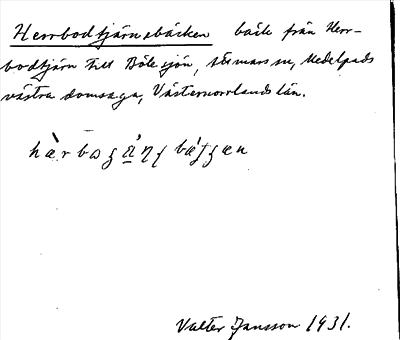 Herrbodtjärnsbäcken bäck från Herr-
bodtjärn till Bölesjön, Medelpads
västra domsaga, Västernorrlands län.
Valter Jansson 1931.